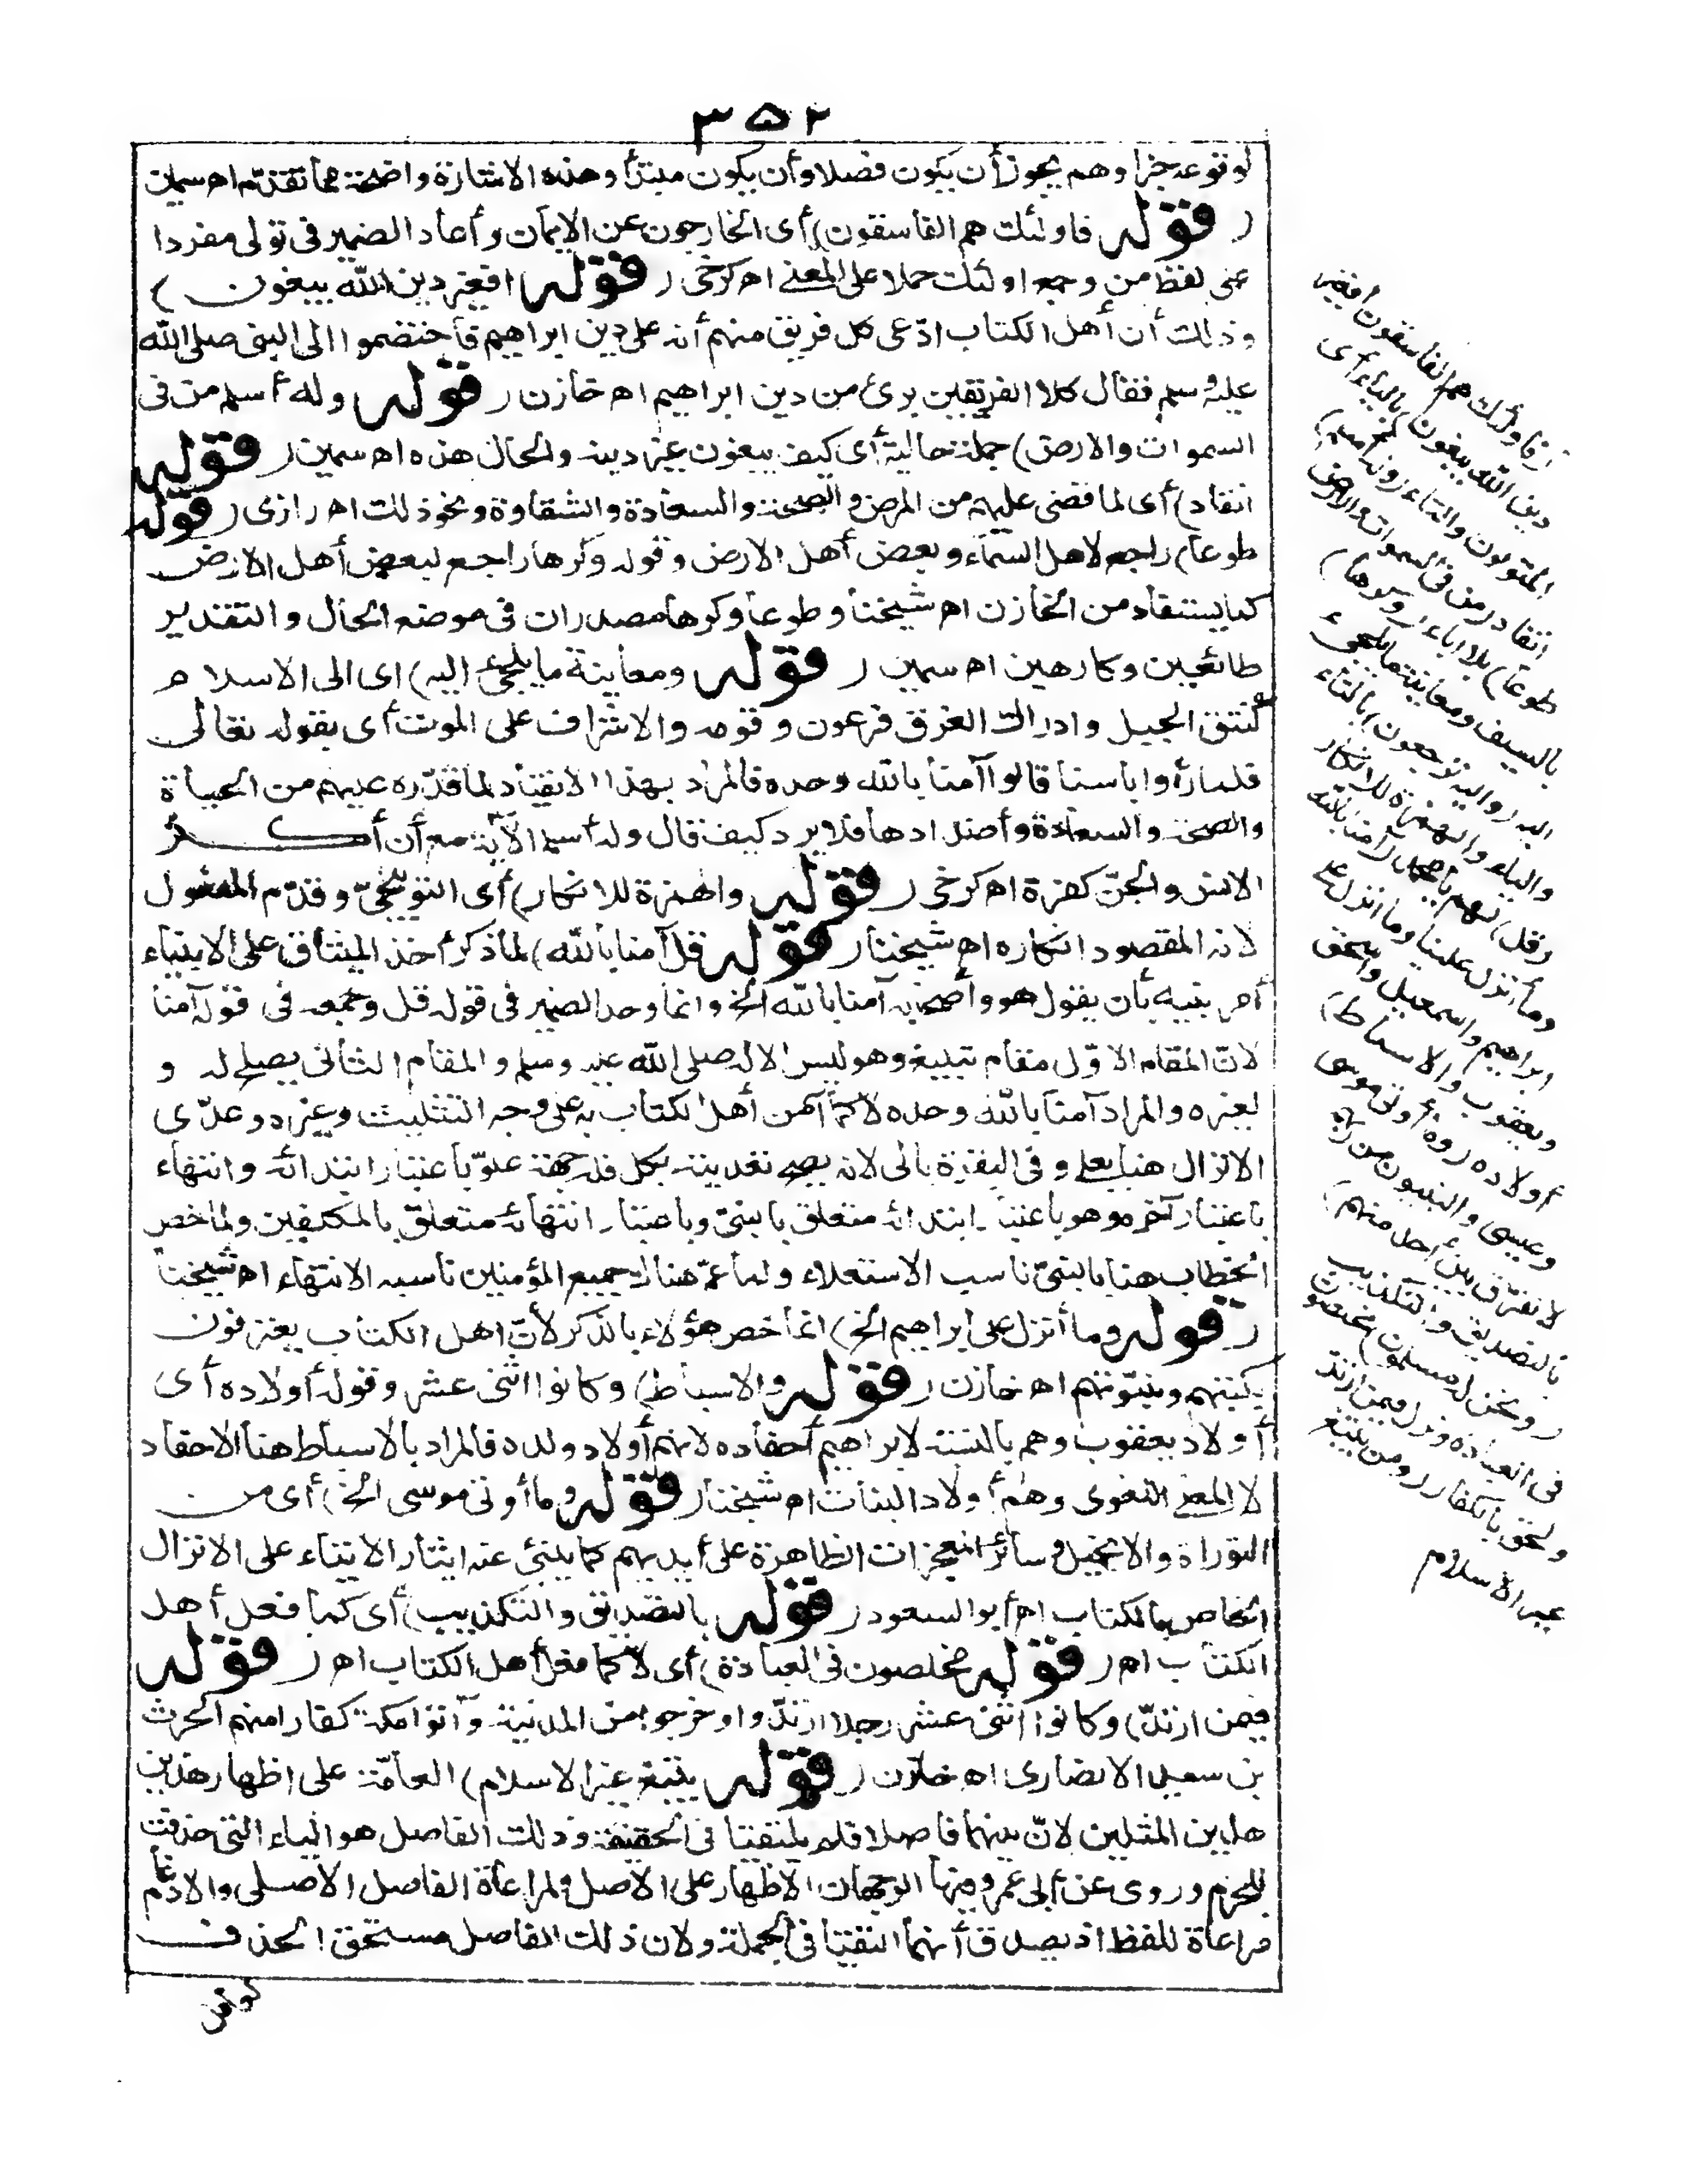 ٣٥٢
لوقوعه جزا وهم يجوز أن يكون فصلا وأن يكون مبتدأ وهذه الاشارة واضحة مما تقدّم اه سمين
( قوله فاولئك هم الفاسقون) أى الخارجون عن الايمان وأعاد الضمير فى تولى مفردا
على لفظ من وجمع اولئك حملا على المعنى اه كرخى ( قوله افغير دين الله يبغون )
وذلك أن أهل الكتاب ادّعى كل فريق منهم أنه على دين ابراهيم فاختصموا الى النبى صلى الله
عليه وسلم فقال كلا الفريقين برئ من دين ابراهيم اه خازن ( قوله وله أسلم من فى
السموات والارض) جملة حالية أى كيف يبغون غير دينه والحال هذه اه سمين ( قوله
انقاد) أى لما قضى عليهم من المرض والصحة والسعادة والشقاوة ونحو ذلك اه رازى ( قوله
طوعا) راجع لاهل السماء وبعض أهل الارض وقوله وكرها راجع لبعض أهل الارض
كما يستفاد من الخازن اه شيخنا وطوعا وكرها مصدران فى موضع الحال والتقدير
طائعين وكارهين اه سمين ( قوله ومعاينة ما يلجئ اليه) اى الى الاسلام
كنتق الجبل وادراك الغرق فرعون وقومه والاشراف على الموت أى بقوله تعالى
فلما رأوا بأسنا قالوا آمنا بالله وحده فالمراد بهذا الانقياد لما قدّره عليهم من الحياة
والصحة والسعادة وأضدادها فلا يرد كيف قال وله أسلم الآية مع أن أكثر
الانس والجنّ كفرة اه كرخى ( قوله والهمزة للانكار) أى التوبيخىّ وقدّم المفعول
لانه المقصود انكاره اه شيخنا ( قوله قل آمنا بالله) لما ذكر أخذ الميثاق على الانبياء
أمر نبيه بأن يقول هو وأصحابه آمنا بالله الخ وانما وحد الضمير فى قوله قل وجمعه فى قوله آمنا
لانّ المقام الاوّل مقام تبليغ وهو ليس الا له صلى الله عليه وسلم والمقام الثانى يصلح له و
لغيره والمراد آمنا بالله وحده لا كما آمن أهل الكتاب به على وجه التثليث وغيره وعدّى
الانزال هنا بعلى وفى البقرة بالى لانه يصح تعديته بكل فله جهة علوّ باعتبار ابتدائه وانتهاء
باعتبار آخر وهو باعتبار ابتدائه متعلق بالنبىّ وباعتبار انتهائه متعلق بالمكلفين ولما خص
الخطاب هنا بالنبىّ ناسب الاستعلاء ولما عمّ هناك جميع المؤمنين ناسبه الانتهاء اه شيخنا
( قوله وما أنزل على ابراهيم الخ) انما خص هؤلاء بالذكر لأنّ اهل الكتاب يعترفون
بكتبهم ونبوّتهم اه خازن ( قوله والاسباط) وكانوا اثنى عشر وقوله أولاده أى
أولاد يعقوب وهم بالنسبة لابراهيم أحفاده لانهم أولاد ولده فالمراد بالاسباط هنا الاحفاد
لا المعنى اللغوى وهم أولاد البنات اه شيخنا ( قوله وما أوتى موسى الخ) أى من
التوراة والانجيل وسائر المعجزات الظاهرة على أيديهم كما ينبئ عنه ايثار الايتاء على الانزال
الخاص بالكتاب اه أبو السعود ( قوله بالتصديق والتكذيب) أى كما فعل أهل
الكتاب اه ( قوله مخلصون فى العبادة) أى لا كما فعل أهل الكتاب اه ( قوله
فيمن ارتدّ) وكانوا اثنى عشر رجلا ارتدّوا وخرجوا من المدينة وأتوا مكة كفارا منهم الحرث
بن سعيد الانصارى اه خازن ( قوله يبتغ غير الاسلام) العامّة على اظهار هذين
المثلين لانّ بينهما فاصلا فلم يلتقيا فى الحقيقة وذلك الفاصل هو الياء التى حذفت
للجزم وروى عن أبى عمرو فيها الوجهان الاظهار على الاصل ولمراعاة الفاصل الاصلى والادغام
مراعاة للفظ اذ يصدق أنهما التقيا فى الجملة ولان ذلك الفاصل مستحق الحذف
(فاولئك هم الفاسقون أفغير
دين الله يبغون) بالياء أى
المتولون والتاء (وله أسلم)
انقاد (من فى السموات والارض
طوعا) بلا اباء (وكرها)
بالسيف ومعاينة ما يلجئ
اليه (واليه ترجعون) بالتاء
والياء والهمزة للانكار
(قل) لهم يا محمد (آمنا بالله
وما أنزل علينا وما أنزل على
ابراهيم واسمعيل واسحق
ويعقوب والاسباط)
أولاده (وما أوتى موسى
وعيسى والنبيون من ربهم
لا نفرّق بين أحد منهم)
بالتصديق والتكذيب
(ونحن له مسلمون) مخلصون
فى العبادة ونزل فيمن ارتدّ
ولحق بالكفار (ومن يبتغ
غير الاسلام